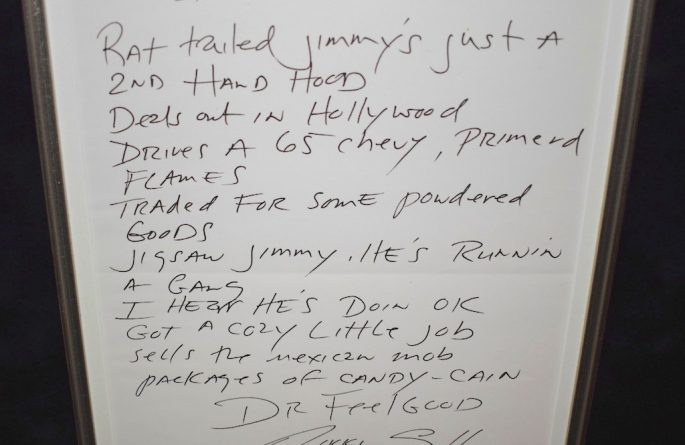 RAT tailed jimmy's just A
2ND HAND HOOD
Deals out in Hollywood
DRIVES A 65 chevy, PRIMERD
FLAMES
TRADED FOR SOME powdered
GOODS
JIGSAW Jimmy. HE'S RUNNIN
A GANG
I HEAR HE'S DOIN OK
GOT A COZY LITTLE JOB
sells the mexican mob
packages of CANDY-CAIN
DR FeelGOOD